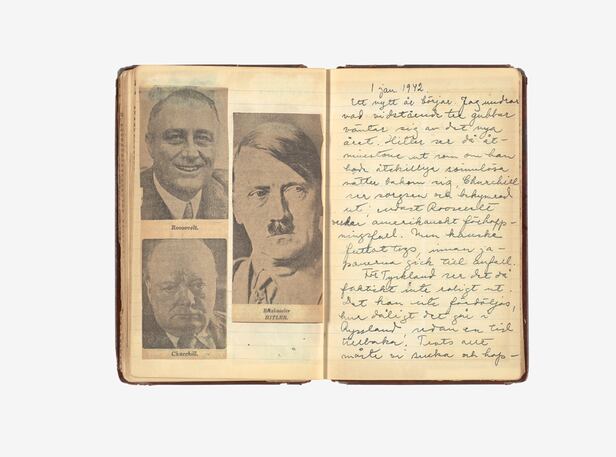 Roosevelt.
Churchill.
HITLER.
1 jan 1942.
Ett nytt år börjar. Jag undrar
vad vidstående tre gubbar
väntar sig av det nya
året. Hitler ser då åt-
minstone ut som om han
hade åtskilliga sömnlösa
nätter bakom sig, Churchill
ser sorgsen och bekymrad
ut; endast Roosevelt
verkar amerikanskt förhopp-
ningsfull. Men kanske
fottot togs innan ja-
panerna gick till anfall.
För Tyskland ser det då
faktiskt inte roligt ut.
Det kan inte fördöljas,
hur dåligt det går i
Ryssland sedan en tid
tillbaka. Trots allt
måste vi sucka och hop-